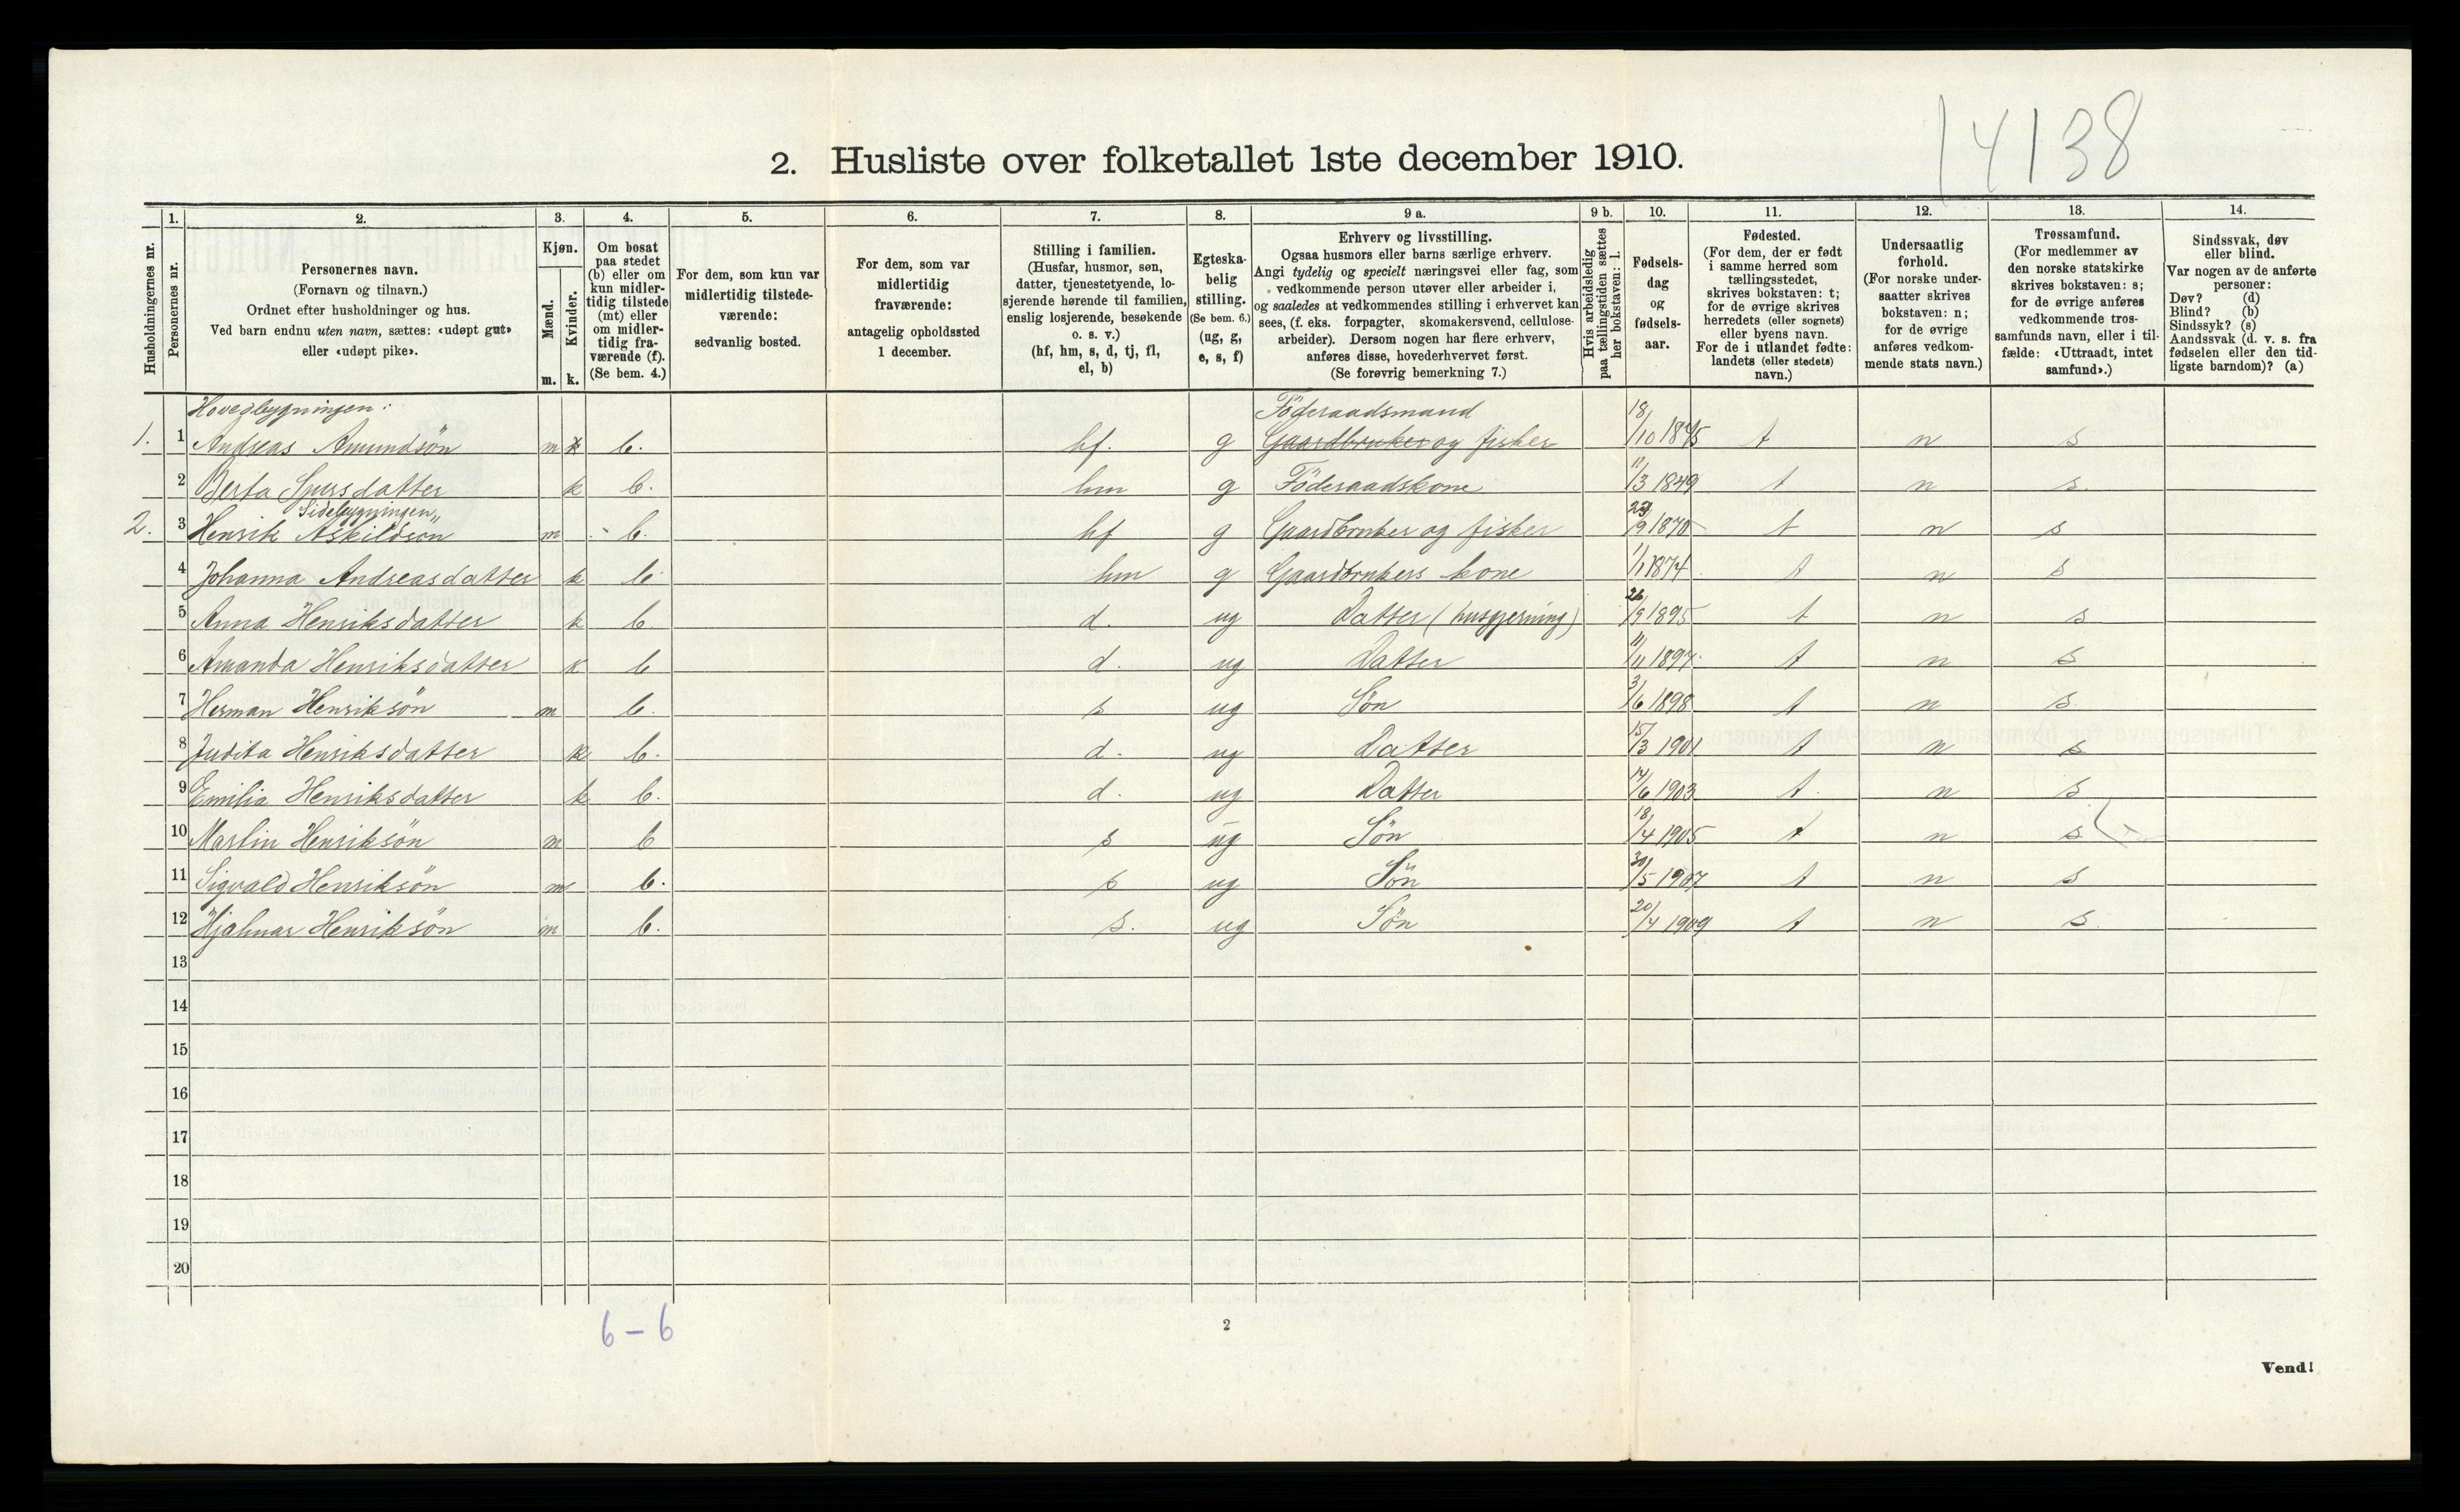 14138
2. Husliste over folketallet 1ste december 1910.
1. 2. 3. 4. 5. 6. 7. 8. 9 a. 9 b. 10. 11. 12. 13. 14.
Husholdningernes nr.
Personernes nr.
Personernes navn.
(Fornavn og tilnavn.)
Ordnet efter husholdninger og hus.
Ved barn endnu uten navn, sættes: «udøpt gut»
eller «udøpt pike».
Kjøn.
Mænd.
Kvinder.
m. k.
Om bosat
paa stedet
(b) eller om
kun midler-
tidig tilstede
(mt) eller
om midler-
tidig fra-
værende (f).
(Se bem. 4.)
For dem, som kun var
midlertidig tilstede-
værende:
sedvanlig bosted.
For dem, som var
midlertidig
fraværende:
antagelig opholdssted
1 december.
Stilling i familien.
(Husfar, husmor, søn,
datter, tjenestetyende, lo-
sjerende hørende til familien,
enslig losjerende, besøkende
o. s. v.)
(hf, hm, s, d, tj, fl,
el, b)
Egteska-
belig
stilling.
(Se bem. 6.)
(ug, g,
e, s, f)
Erhverv og livsstilling.
Ogsaa husmors eller barns særlige erhverv.
Angi tydelig og specielt næringsvei eller fag, som
vedkommende person utøver eller arbeider i,
og saaledes at vedkommendes stilling i erhvervet kan
sees, (f. eks. forpagter, skomakersvend, cellulose-
arbeider). Dersom nogen har flere erhverv,
anføres disse, hovederhvervet først.
(Se forøvrig bemerkning 7.)
Hvis arbeidsledig
paa tællingstiden sættes
her bokstaven: l.
Fødsels-
dag
og
fødsels-
aar.
Fødested.
(For dem, der er født
i samme herred som
tællingsstedet,
skrives bokstaven: t;
for de øvrige skrives
herredets (eller sognets)
eller byens navn.
For de i utlandet fødte:
landets (eller stedets)
navn.)
Undersaatlig
forhold.
(For norske under-
saatter skrives
bokstaven: n;
for de øvrige
anføres vedkom-
mende stats navn.)
Trossamfund.
(For medlemmer av
den norske statskirke
skrives bokstaven: s;
for de øvrige anføres
vedkommende tros-
samfunds navn, eller i til-
fælde: «Uttraadt, intet
samfund».)
Sindssvak, døv
eller blind.
Var nogen av de anførte
personer:
Døv? (d)
Blind? (b)
Sindssyk? (s)
Aandssvak (d. v. s. fra
fødselen eller den tid-
ligste barndom)? (a)
Hovedbygningen: Föderaadsmand
1. 1 Andreas Amundsön m k b. hf. g Gaardbruker og fisker 18/10 1845 t n s
2 Berta Sjursdatter k b. hm g Föderaadskone 11/3 1849 t n s.
Sidebygningen
2. 3 Henrik Askildsön m b. hf g Gaardbruker og fisker /9 1870 t n s
4 Johanna Andreasdatter k b hm g Gaardbrukers kone 1/1 1874 t n s
5 Anna Henriksdatter k b d. ug Datter (husgjerning) 26/9 1895 t n s
6 Amanda Henriksdatter k b d. ug Datter 11/11 1897 t n s
7 Herman Henriksön m b. s ug Sön 3/6 1898 t n s.
8 Judita Henriksdatter k b. d. ug Datter 15/3 1901 t n s
9 Emilia Henriksdatter k b. d. ug Datter 14/6 1903 t n s
10 Martin Henriksön m b s ug Sön 18/4 1905 t n s
11 Sigvald Henriksön m b. s ug Sön 30/5 1907 t n s
12 Hjalmar Henriksön m b. s. ug Sön 20/4 1909 t n s.
13
14
15
16
17
18
19
20
6 - 6
2
Vend!